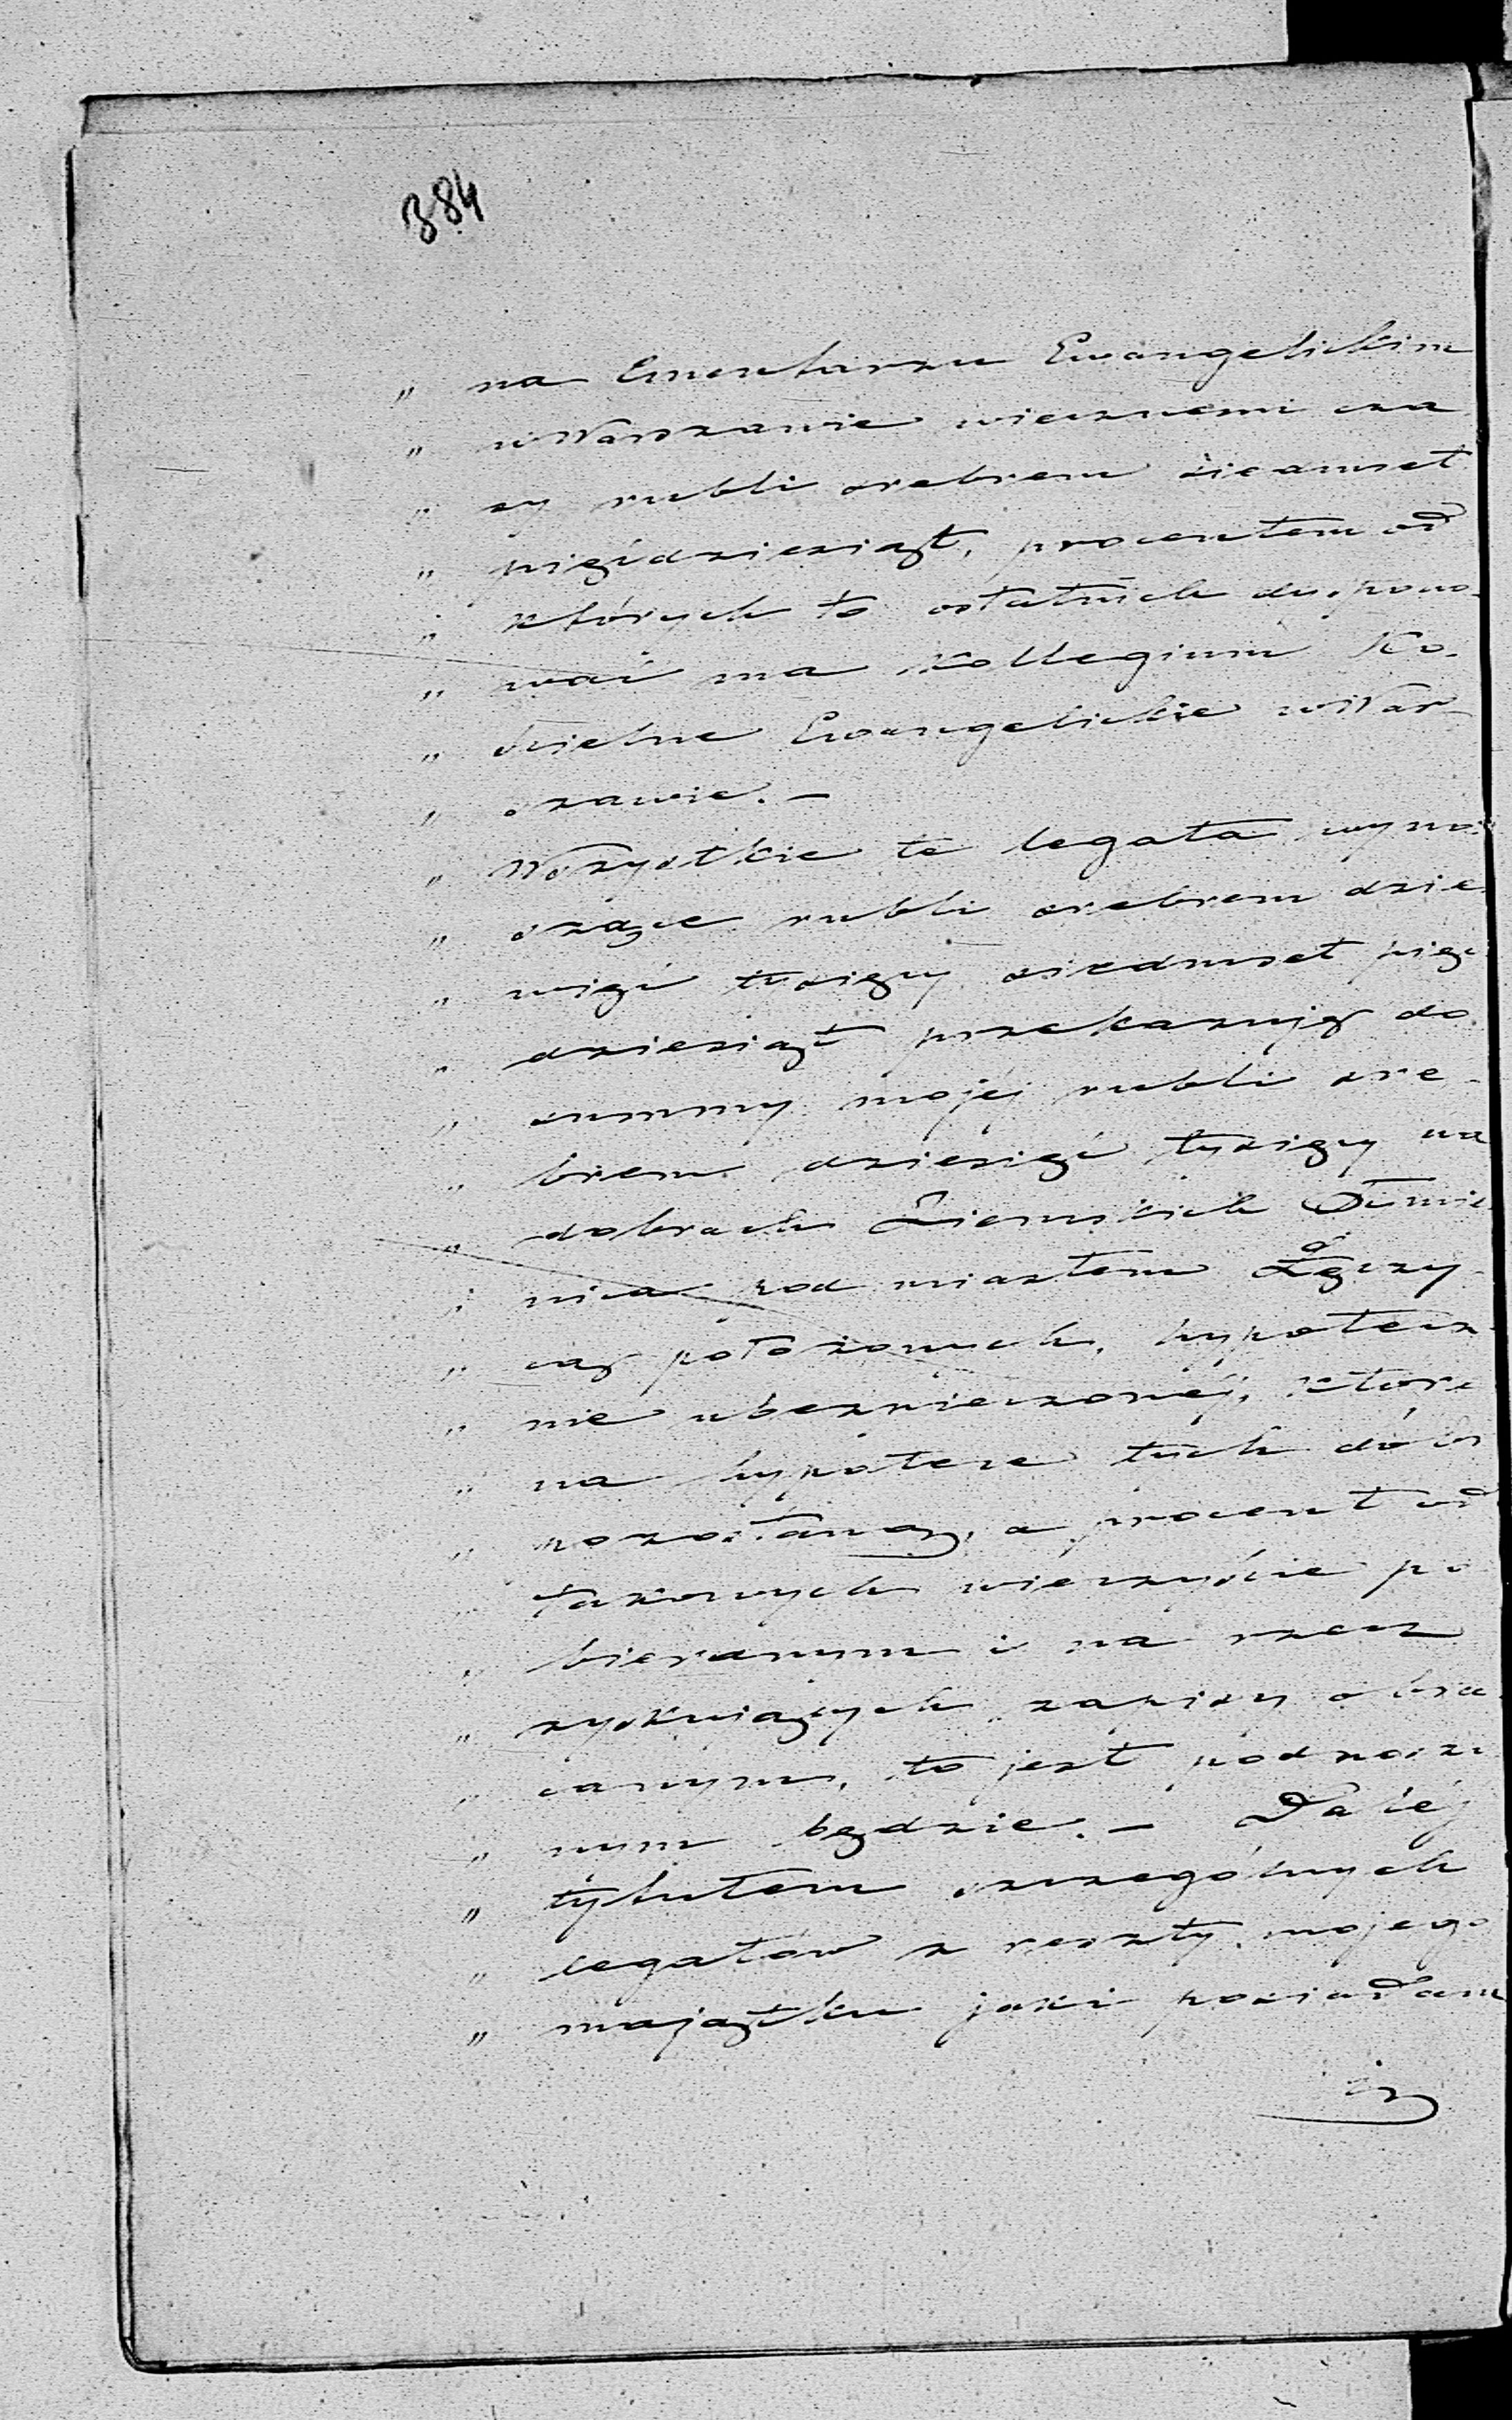 384
„ na Cmentarzu Ewangelickim
„ w Warszawie wiecznemi cza
„ sy rubli srebrem siedmset
„ pięćdziesiąt, procentem od
„ których to ostatnich dyspono-
„ wać ma Kollegium Ko-
„ ścielne Ewangelickie w War
„ szawie. –
„ Wszystkie te legata wyno-
„ szące rubli srebrem dzie
„ więć tysięcy siedmset pięć
„ dziesiąt przekazuję do
„ summy mojéj rubli sre-
„ brem dziesięć tysięcy na
„ dobrach Ziemskich
„ nica pod miastem Łęczy-
„ cą położonych, hypotecz
„ nie ubezpieczonéj, które
„ na hypotece tych dóbr
„ pozostaną, a procent od
„ takowych wieczyście po
„ bieranym i na rzecz
„ zyskujących zapisy obra
„ canym, to jest podnoszo
„ nym będzie. – Daléj
„ tytułem szczegółnych
„ legatów z reszty mojego
„ majątku jaki posiadam